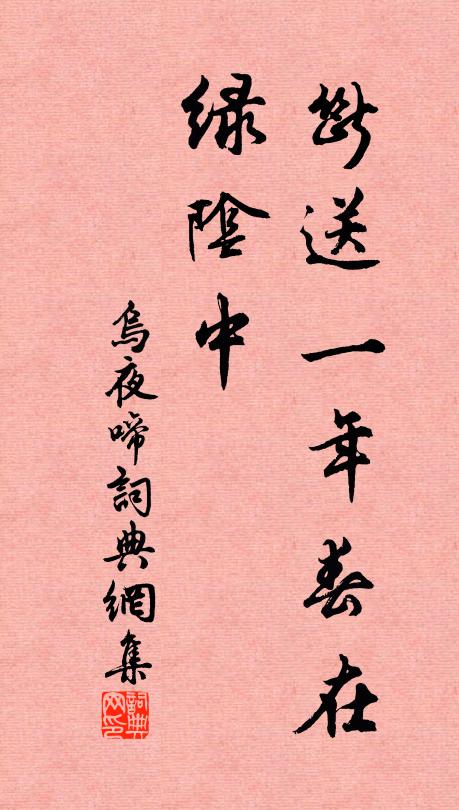 斷送一年春在
綠陰中
烏夜啼詞典網集
詞典网印